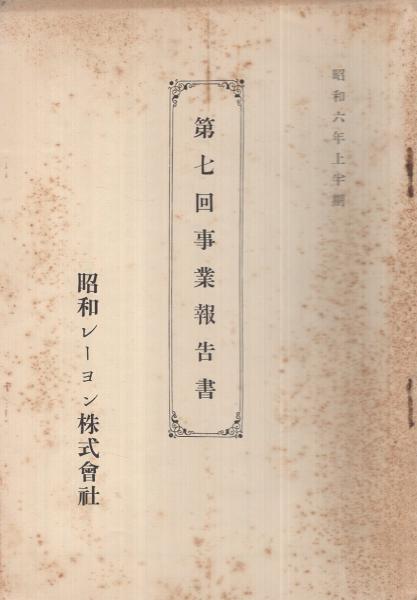 昭和六年上半期
第七回事業報告書
昭和レーヨン株式會社